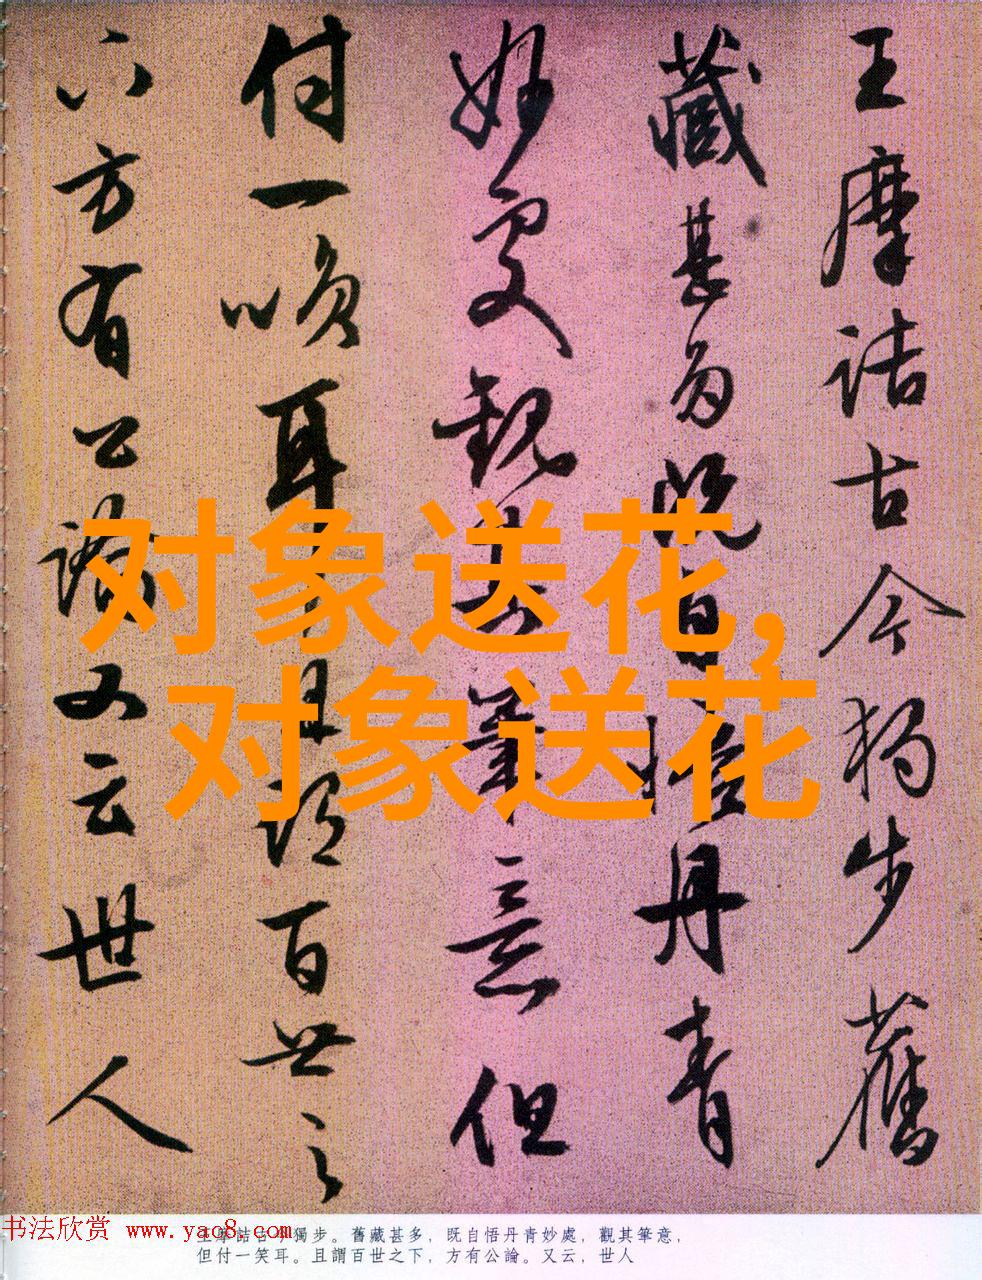 王摩诘古今獨步舊
藏甚多既自悟丹青
妙處觀其筆意但
付一唉耳且謂百世之
下方有公論又云世人
对象送花，
对象送花
书法欣赏 www.yac8.com
王摩詰古今獨步。舊藏甚多，既自悟丹青妙處，觀其筆意，
但付一笑耳。且謂百世之下，方有公論。又云，世人